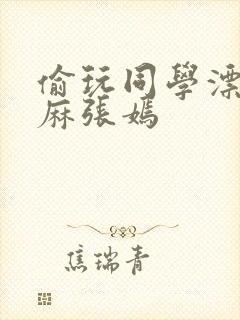 偷玩同學漂
麻張媽
焦瑞青